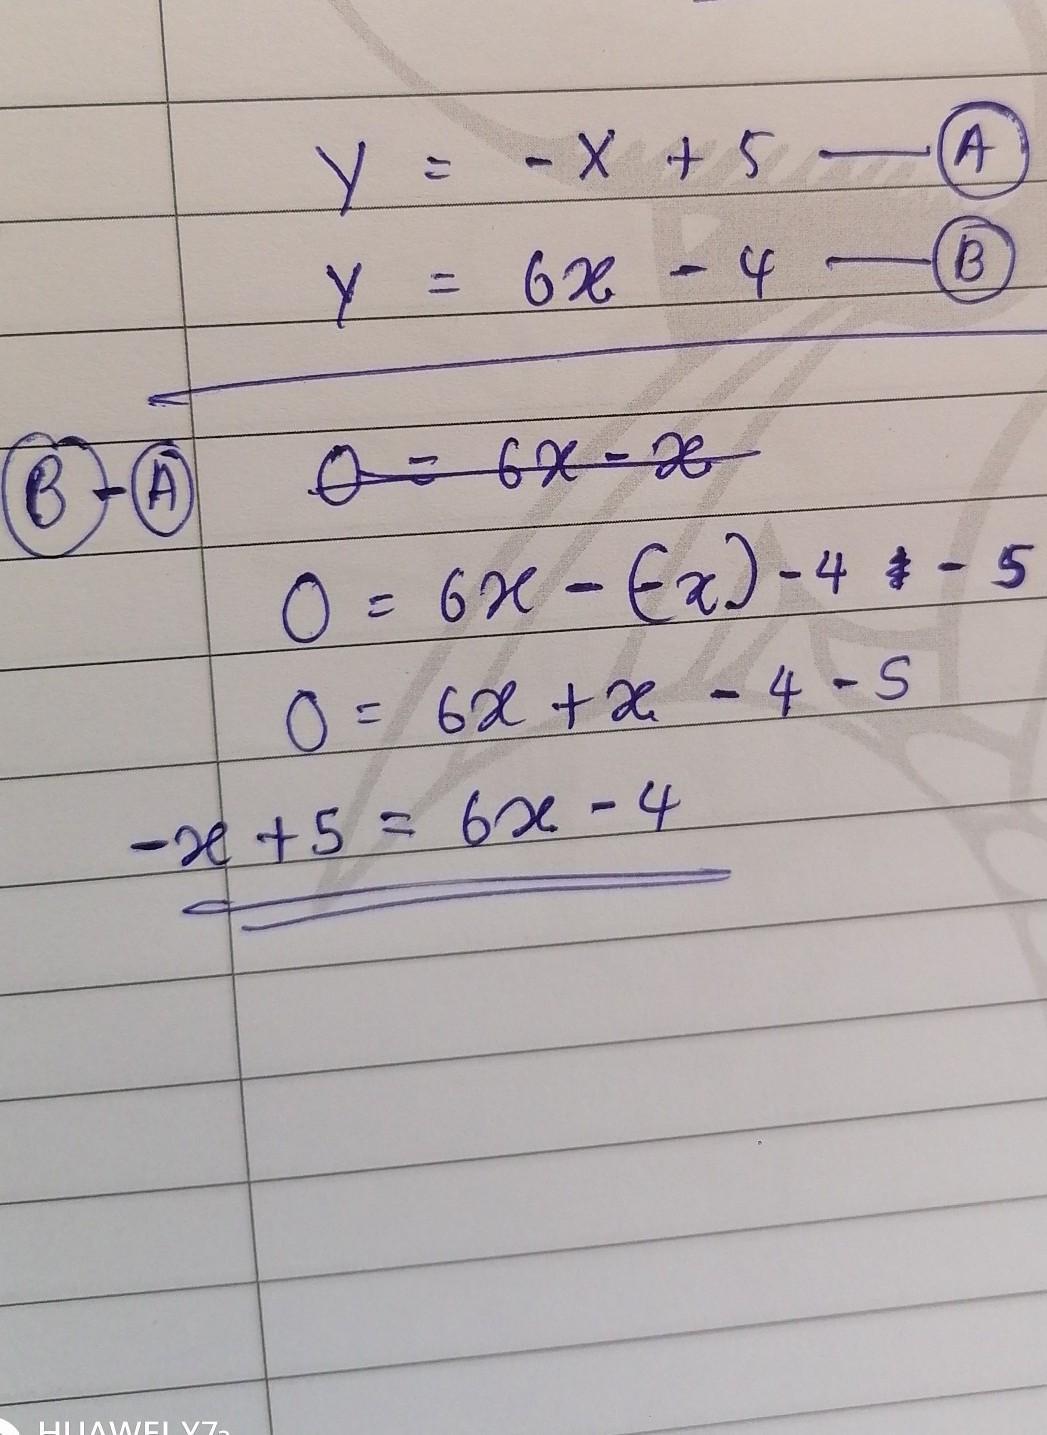 y = -x + 5 — A
y = 6x - 4 — B
B - A 0 = 6x - x
0 = 6x - (-x) - 4 - 5
0 = 6x + x - 4 - 5
-x + 5 = 6x - 4
HUAWEI Y7a